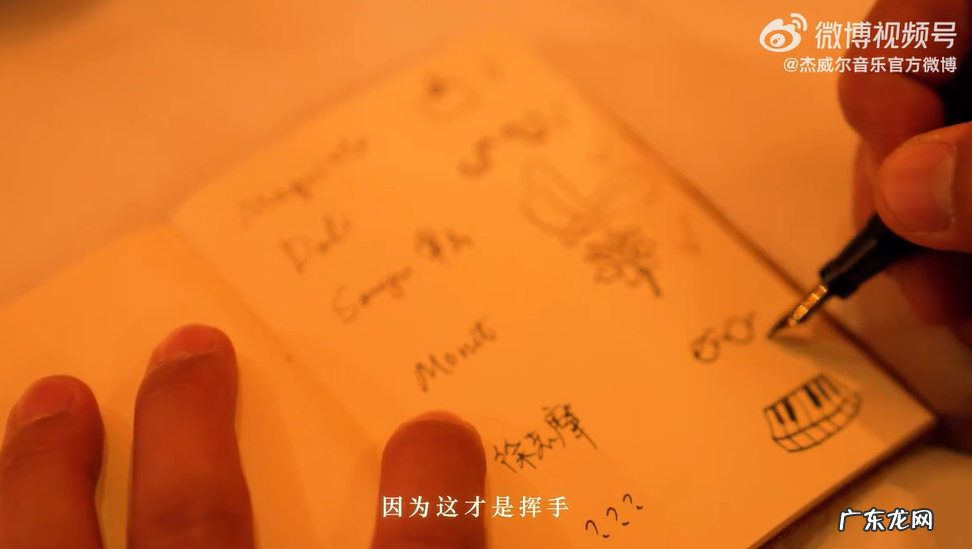 微博视频号
@杰威尔音乐官方微博
Magritte
Dali
Sanyu 常玉
Monet
徐志摩
???
因为这才是挥手
广东龙网